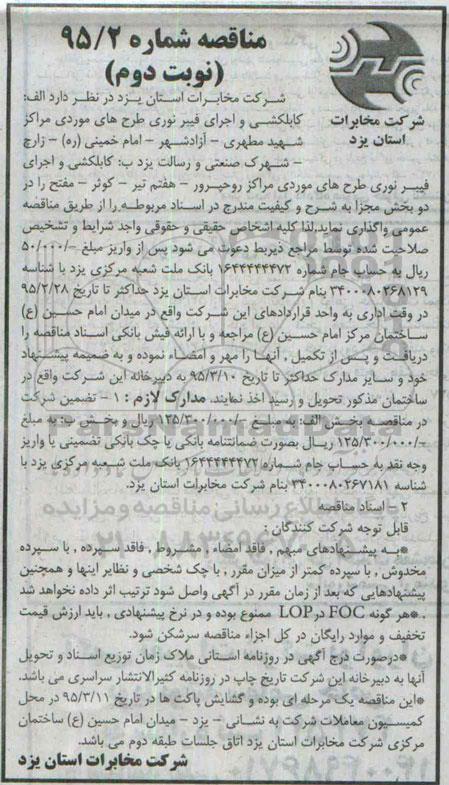 مناقصه شماره ۹۵/۲
(نوبت دوم)
شرکت مخابرات
استان یزد
شرکت مخابرات استان یزد در نظر دارد الف:
کابلکشی و اجرای فیبر نوری طرح های موردی مراکز
شهید مطهری – آزادشهر – امام خمینی (ره) – زارچ
– شهرک صنعتی و رسالت یزد ب: کابلکشی و اجرای
فیبر نوری طرح های موردی مراکز روحیرور – هفتم تیر – کوثر – مفتح را در
دو بخش مجزا به شرح و کیفیت مندرج در اسناد مربوطه را از طریق مناقصه
عمومی واگذاری نماید.لذا کلیه اشخاص حقیقی و حقوقی واجد شرایط و تشخیص
صلاحیت شده توسط مراجع ذیربط دعوت می شود پس از واریز مبلغ ۵۰/۰۰۰/-
ریال به حساب جام شماره ۱۶۴۴۴۴۴۴۷۲ بانک ملت شعبه مرکزی یزد با شناسه
۳۴۰۰۰۸۰۲۶۸۱۲۹ بنام شرکت مخابرات استان یزد حداکثر تا تاریخ ۹۵/۲/۲۸
در وقت اداری به واحد قراردادهای این شرکت واقع در میدان امام حسین (ع)
ساختمان مرکز امام حسین (ع) مراجعه و با ارائه فیش بانکی اسناد مناقصه را
دریافت و پس از تکمیل , آنها را مهر و امضاء نموده و به ضمیمه پیشنهاد
خود و سایر مدارک حداکثر تا تاریخ ۹۵/۳/۱۰ به دبیرخانه این شرکت واقع در
ساختمان مذکور تحویل و رسید اخذ نمایند. مدارک لازم : ۱ – تضمین شرکت
در مناقصه بخش الف: به مبلغ -/۱۲۵/۳۰۰/۰۰۰ ریال و بخش ب: به مبلغ
-/۱۲۵/۳۰۰/۰۰۰ ریال بصورت ضمانتنامه بانکی یا چک بانکی تضمینی یا واریز
وجه نقد به حساب جام شماره ۱۶۴۴۴۴۴۴۷۲ بانک ملت شعبه مرکزی یزد با
شناسه ۳۴۰۰۰۸۰۲۶۷۱۸۱ بنام شرکت مخابرات استان یزد.
۲ – اسناد مناقصه
قابل توجه شرکت کنندگان :
*به پیشنهادهای مبهم , فاقد امضاء , مشروط , فاقد سپرده , با سپرده
مخدوش , با سپرده کمتر از میزان مقرر , با چک شخصی و نظایر اینها و همچنین
پیشنهادهایی که بعد از زمان مقرر در آگهی واصل شود ترتیب اثر داده نخواهد شد
. *هر گونه FOC در LOP ممنوع بوده و در نرخ پیشنهادی , باید ارزش قیمت
تخفیف و موارد رایگان در کل اجزاء مناقصه سرشکن شود.
*درصورت درج آگهی در روزنامه استانی ملاک زمان توزیع اسناد و تحویل
آنها به دبیرخانه این شرکت تاریخ چاپ در روزنامه کثیرالانتشار سراسری می باشد.
*این مناقصه یک مرحله ای بوده و گشایش پاکت ها در تاریخ ۹۵/۳/۱۱ در محل
کمیسیون معاملات شرکت به نشانی – یزد – میدان امام حسین (ع) ساختمان
مرکزی شرکت مخابرات استان یزد اتاق جلسات طبقه دوم می باشد.
شرکت مخابرات استان یزد